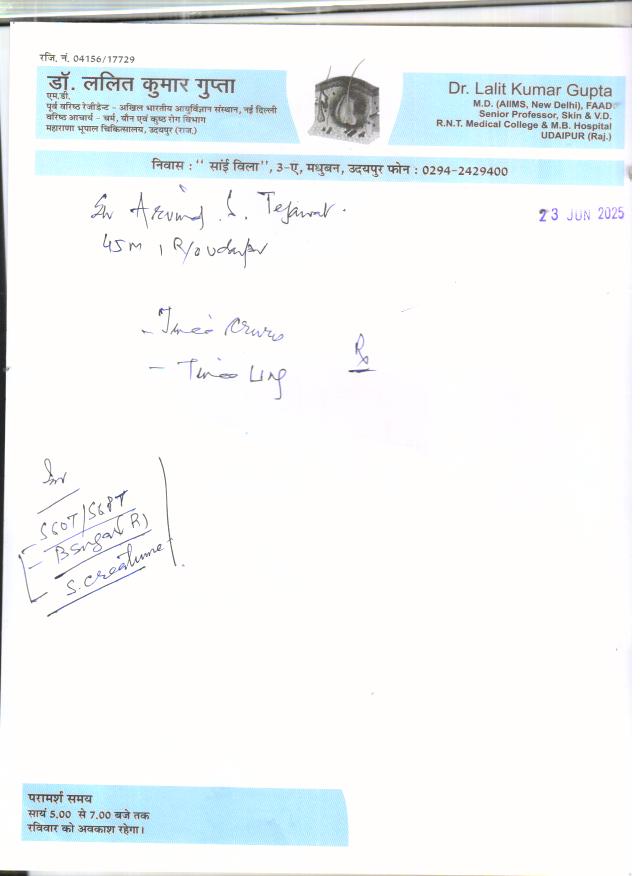 रजि. नं. 04156/17729
डॉ. ललित कुमार गुप्ता
एम.डी.
पूर्व वरिष्ठ रेजीडेन्ट - अखिल भारतीय आयुर्विज्ञान संस्थान, नई दिल्ली
वरिष्ठ आचार्य - चर्म, यौन एवं कुष्ठ रोग विभाग
महाराणा भूपाल चिकित्सालय, उदयपुर (राज.)
Dr. Lalit Kumar Gupta
M.D. (AIIMS, New Delhi), FAAD
Senior Professor, Skin & V.D.
R.N.T. Medical College & M.B. Hospital
UDAIPUR (Raj.)
निवास : " सांई विला", 3-ए, मधुबन, उदयपुर फोन : 0294-2429400
23 JUN 2025
Sh Arvind S. Tejawat.
45m, R/o Udaipur
- Tinea Cruris
- Tinea
Rx
SGOT/SGPT
- B Sugar (R)
S. Creatinine
परामर्श समय
सायं 5.00 से 7.00 बजे तक
रविवार को अवकाश रहेगा।